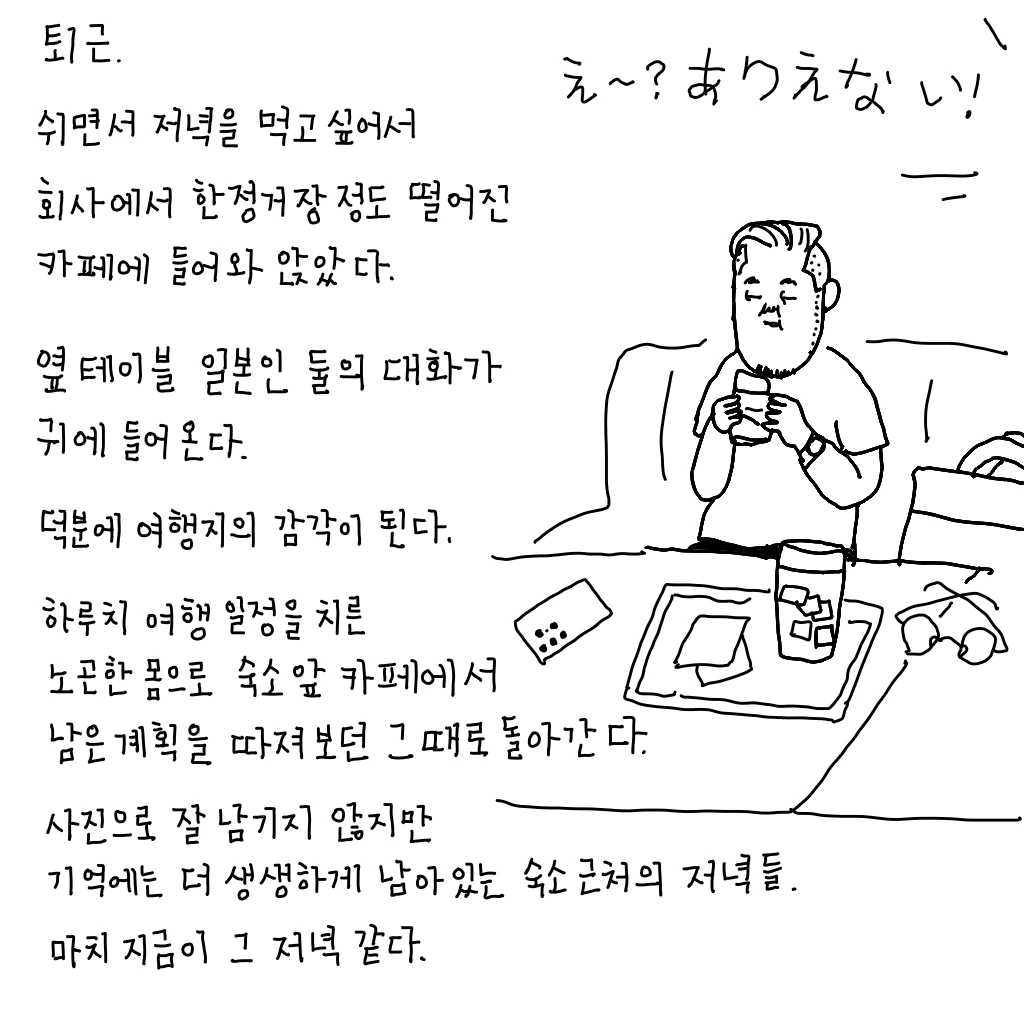 퇴근.
え~?ありえない!
쉬면서 저녁을 먹고 싶어서
회사에서 한정거장 정도 떨어진
카페에 들어와 앉았다.
옆 테이블 일본인 둘의 대화가
귀에 들어온다.
덕분에 여행지의 감각이 된다.
하루치 여행 일정을 치른
노곤한 몸으로 숙소 앞 카페에서
남은 계획을 따져보던 그때로 돌아간다.
사진으로 잘 남기지 않지만
기억에는 더 생생하게 남아있는 숙소 근처의 저녁들.
마치 지금이 그 저녁 같다.